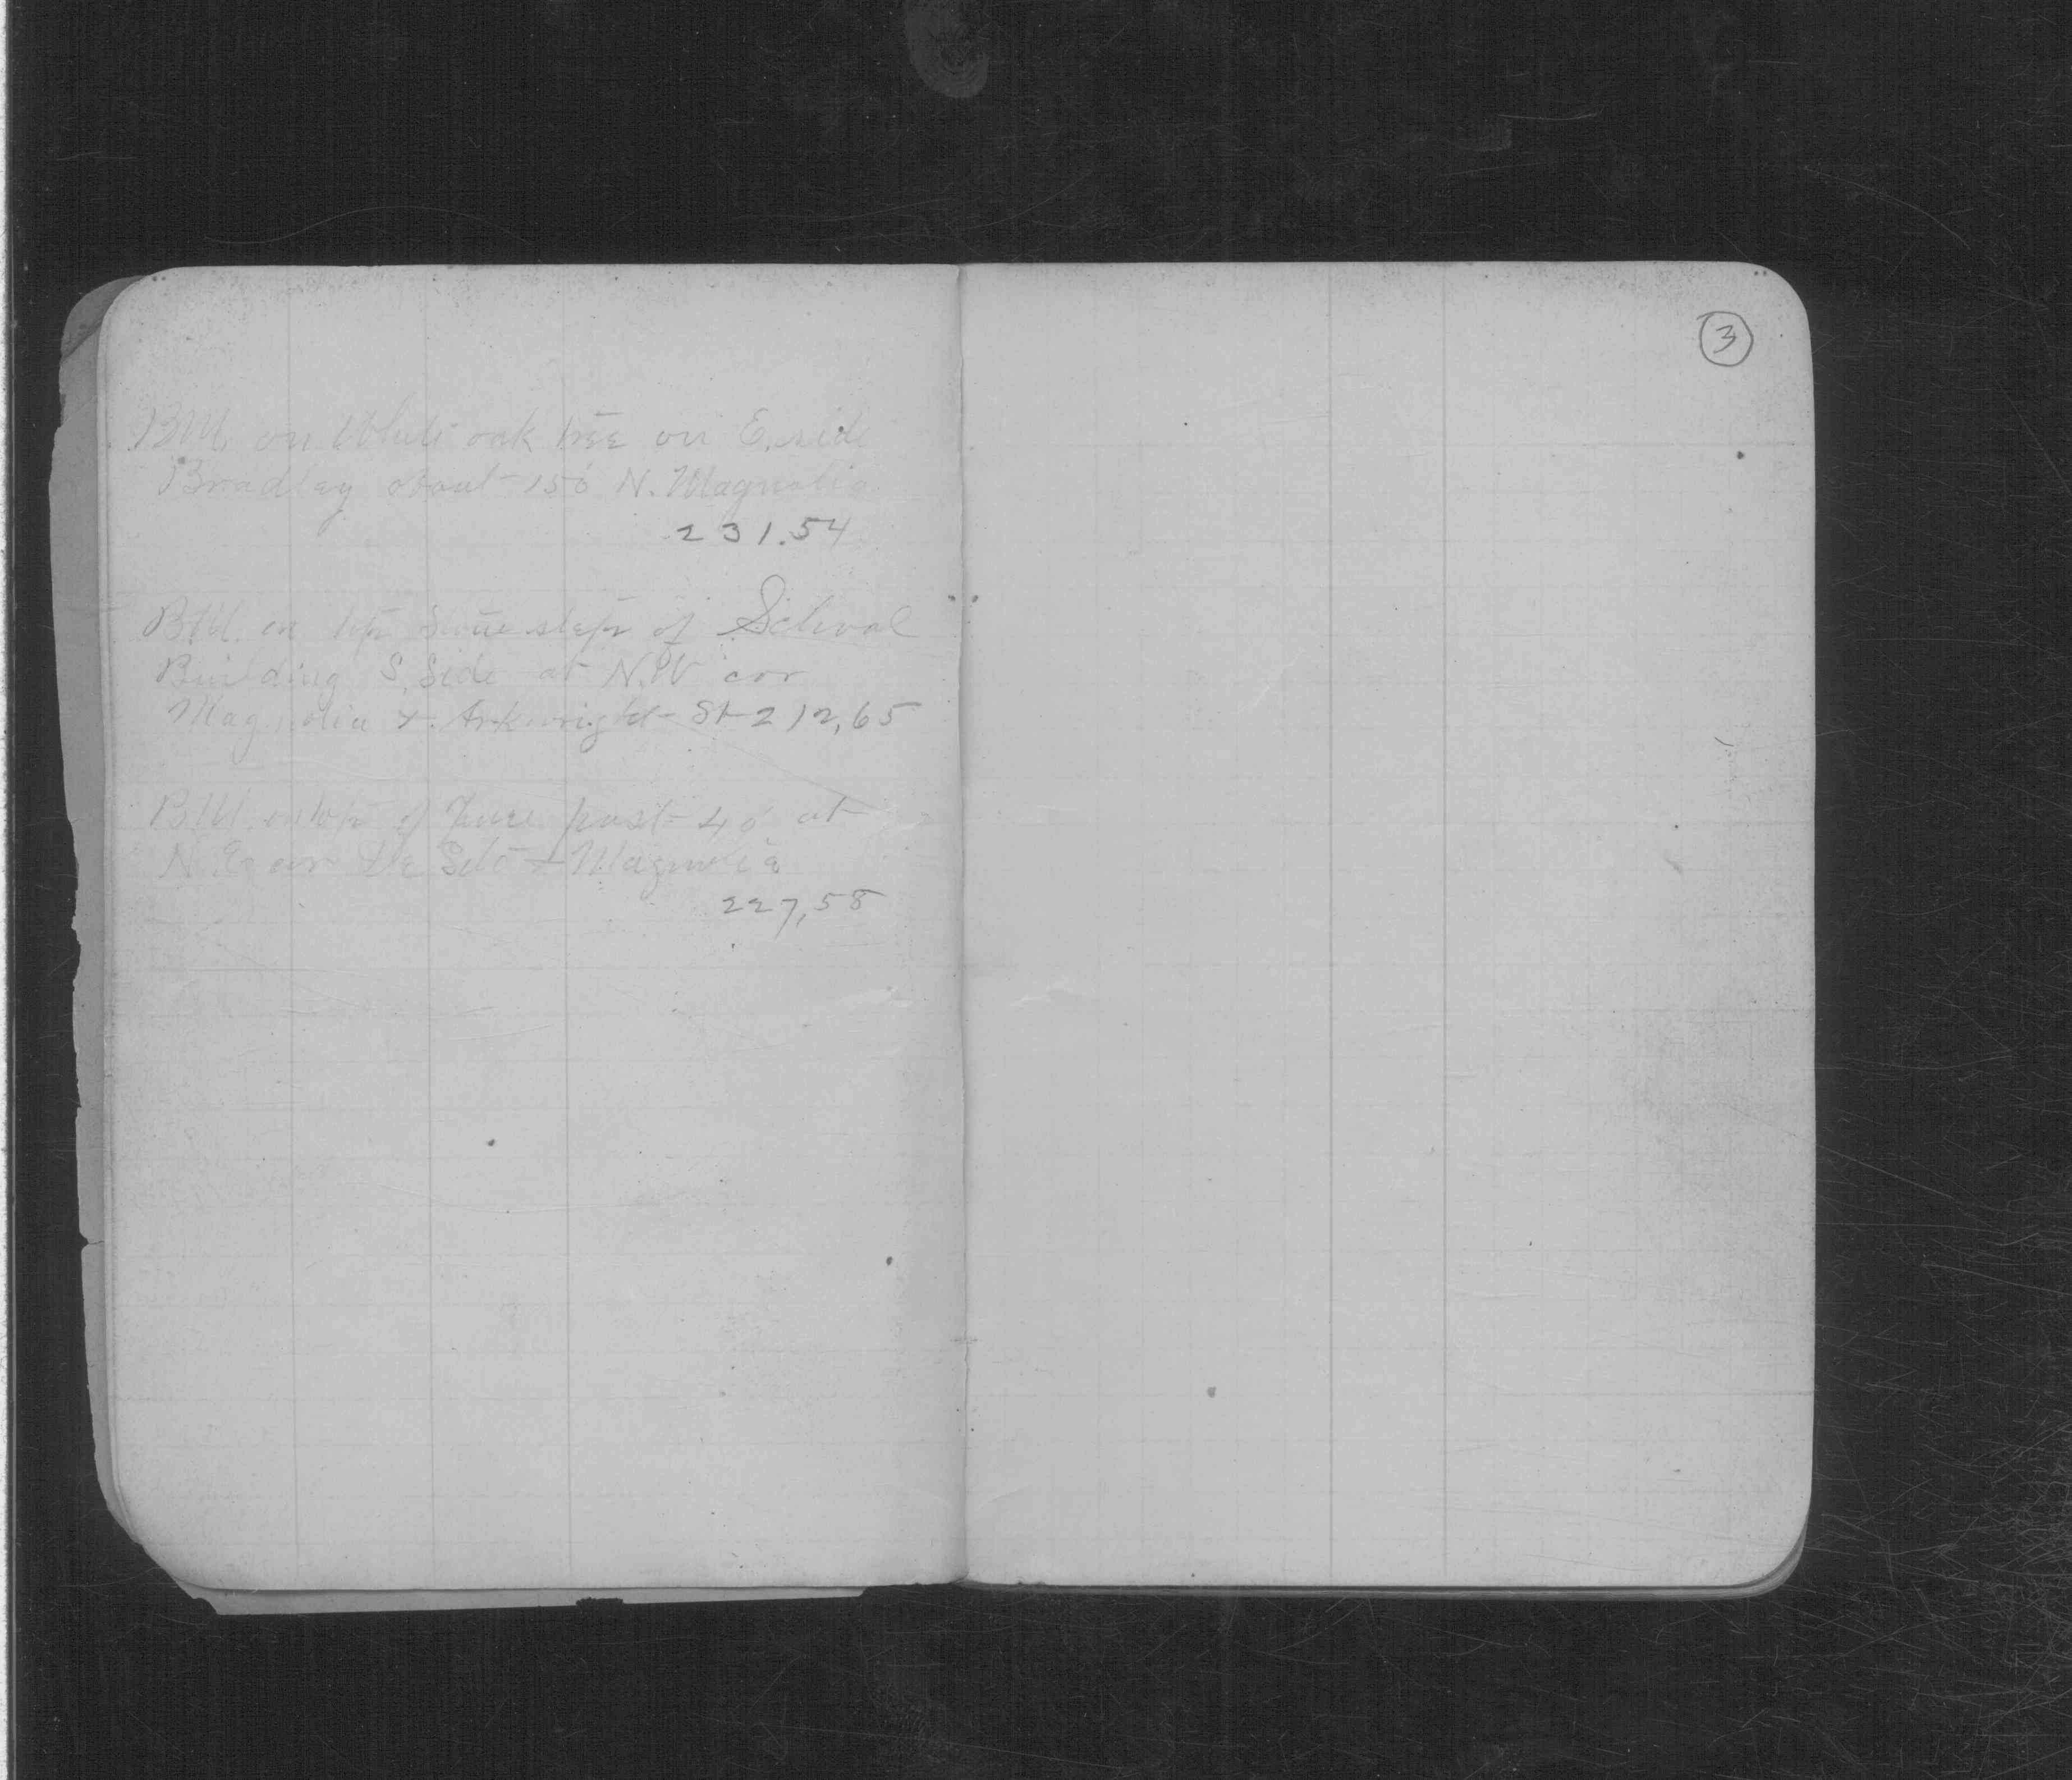 BM. on White oak tree on E. side
Bradley about 150' N. Magnolia
231.54
BM. on top Stone steps of School
Building S. Side at N.W cor
Magnolia & Arkwright St 212,65
BM. on top of post at
N.E. cor De Soto & Magnolia
227,58
3